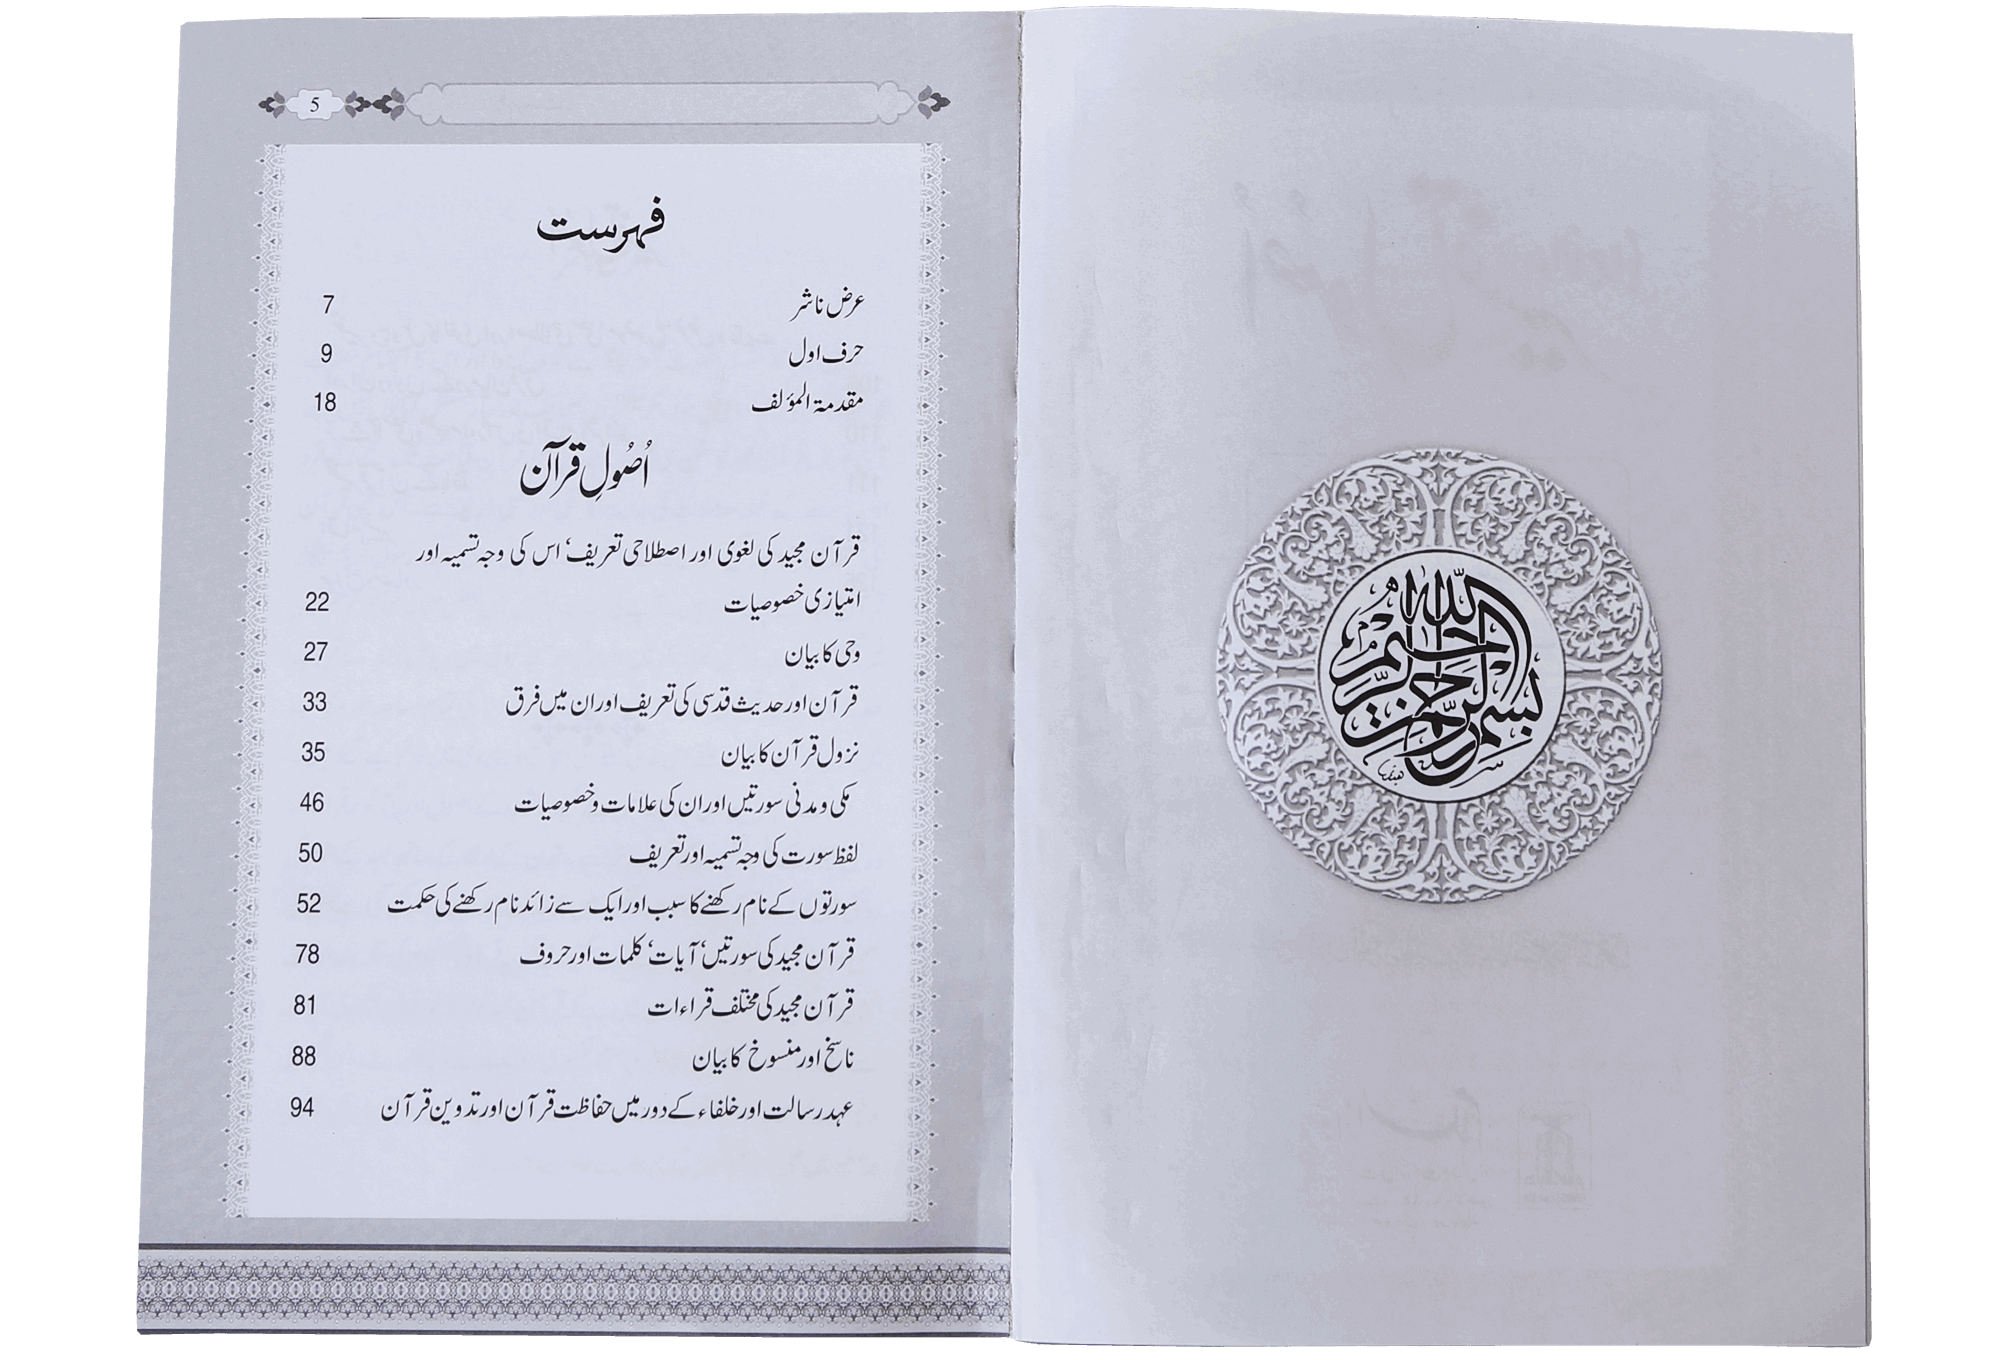 بسم الله الرحمن الرحيم
5
فہرست
عرض ناشر 7
حرف اول 9
مقدمۃ المؤلف 18
اُصُولِ قرآن
قرآن مجید کی لغوی اور اصطلاحی تعریف‘ اس کی وجہ تسمیہ اور
امتیازی خصوصیات 22
وحی کا بیان 27
قرآن اور حدیث قدسی کی تعریف اور ان میں فرق 33
نزول قرآن کا بیان 35
مکی و مدنی سورتیں اور ان کی علامات و خصوصیات 46
لفظ سورت کی وجہ تسمیہ اور تعریف 50
سورتوں کے نام رکھنے کا سبب اور ایک سے زائد نام رکھنے کی حکمت 52
قرآن مجید کی سورتیں‘ آیات‘ کلمات اور حروف 78
قرآن مجید کی مختلف قراءات 81
ناسخ اور منسوخ کا بیان 88
عہد رسالت اور خلفاء کے دور میں حفاظت قرآن اور تدوین قرآن 94